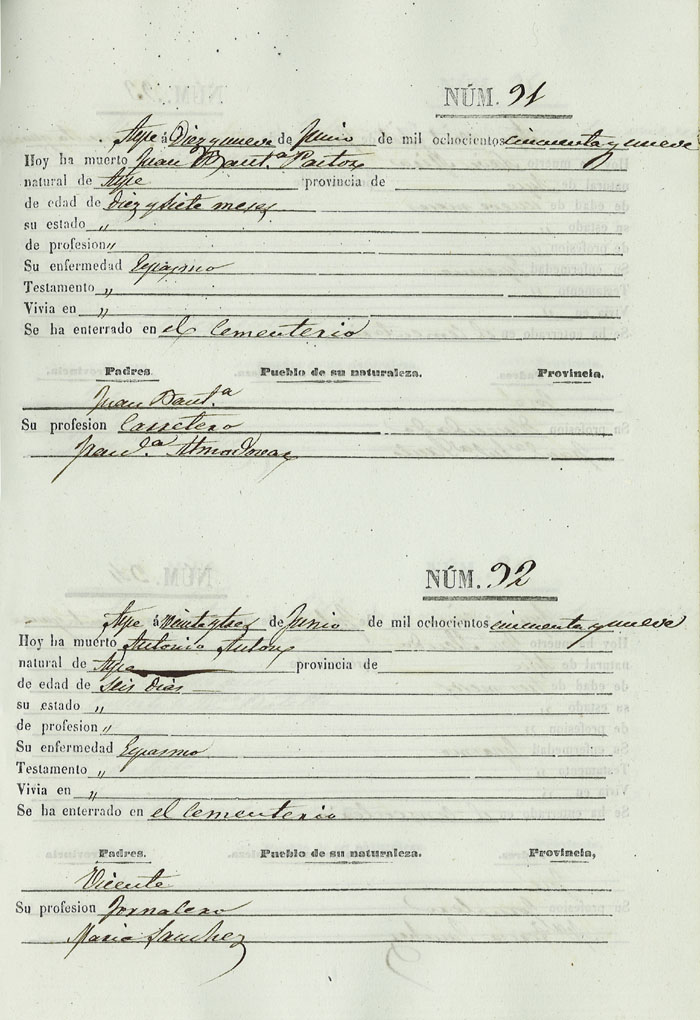 NÚM. 91
Aspe á Diez y nueve de Junio de mil ochocientos cincuenta y nueve
Hoy ha muerto Juan Baut.ª Pastor
natural de Aspe provincia de
de edad de diez y siete meses
su estado „
de profesion „
Su enfermedad Espasmo
Testamento „
Vivia en „
Se ha enterrado en el Cementerio
Padres. Pueblo de su naturaleza. Provincia.
Juan Baut.ª
Su profesion Carretero
Fran.ca Almodovar
NÚM. 92
Aspe á veinte y tres de Junio de mil ochocientos cincuenta y nueve
Hoy ha muerto Antonio Anton
natural de Aspe provincia de
de edad de seis dias
su estado „
de profesion „
Su enfermedad Espasmo
Testamento „
Vivia en „
Se ha enterrado en el Cementerio
Padres. Pueblo de su naturaleza. Provincia,
Vicente
Su profesion Jornalero
Maria Sanchez